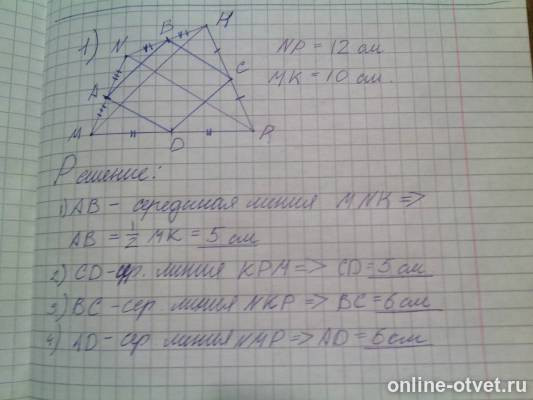 1)
N B H
A C
M D P
NP = 12 см
MK = 10 см.
Решение:
1) AB – серединая линия MNK =>
AB = 1/2 MK = 5 см
2) CD – ср. линия KPM => CD = 5 см
3) BC – сер линия NKP => BC = 6 см
4) AD – ср линия NMP => AD = 6 см
online-otvet.ru